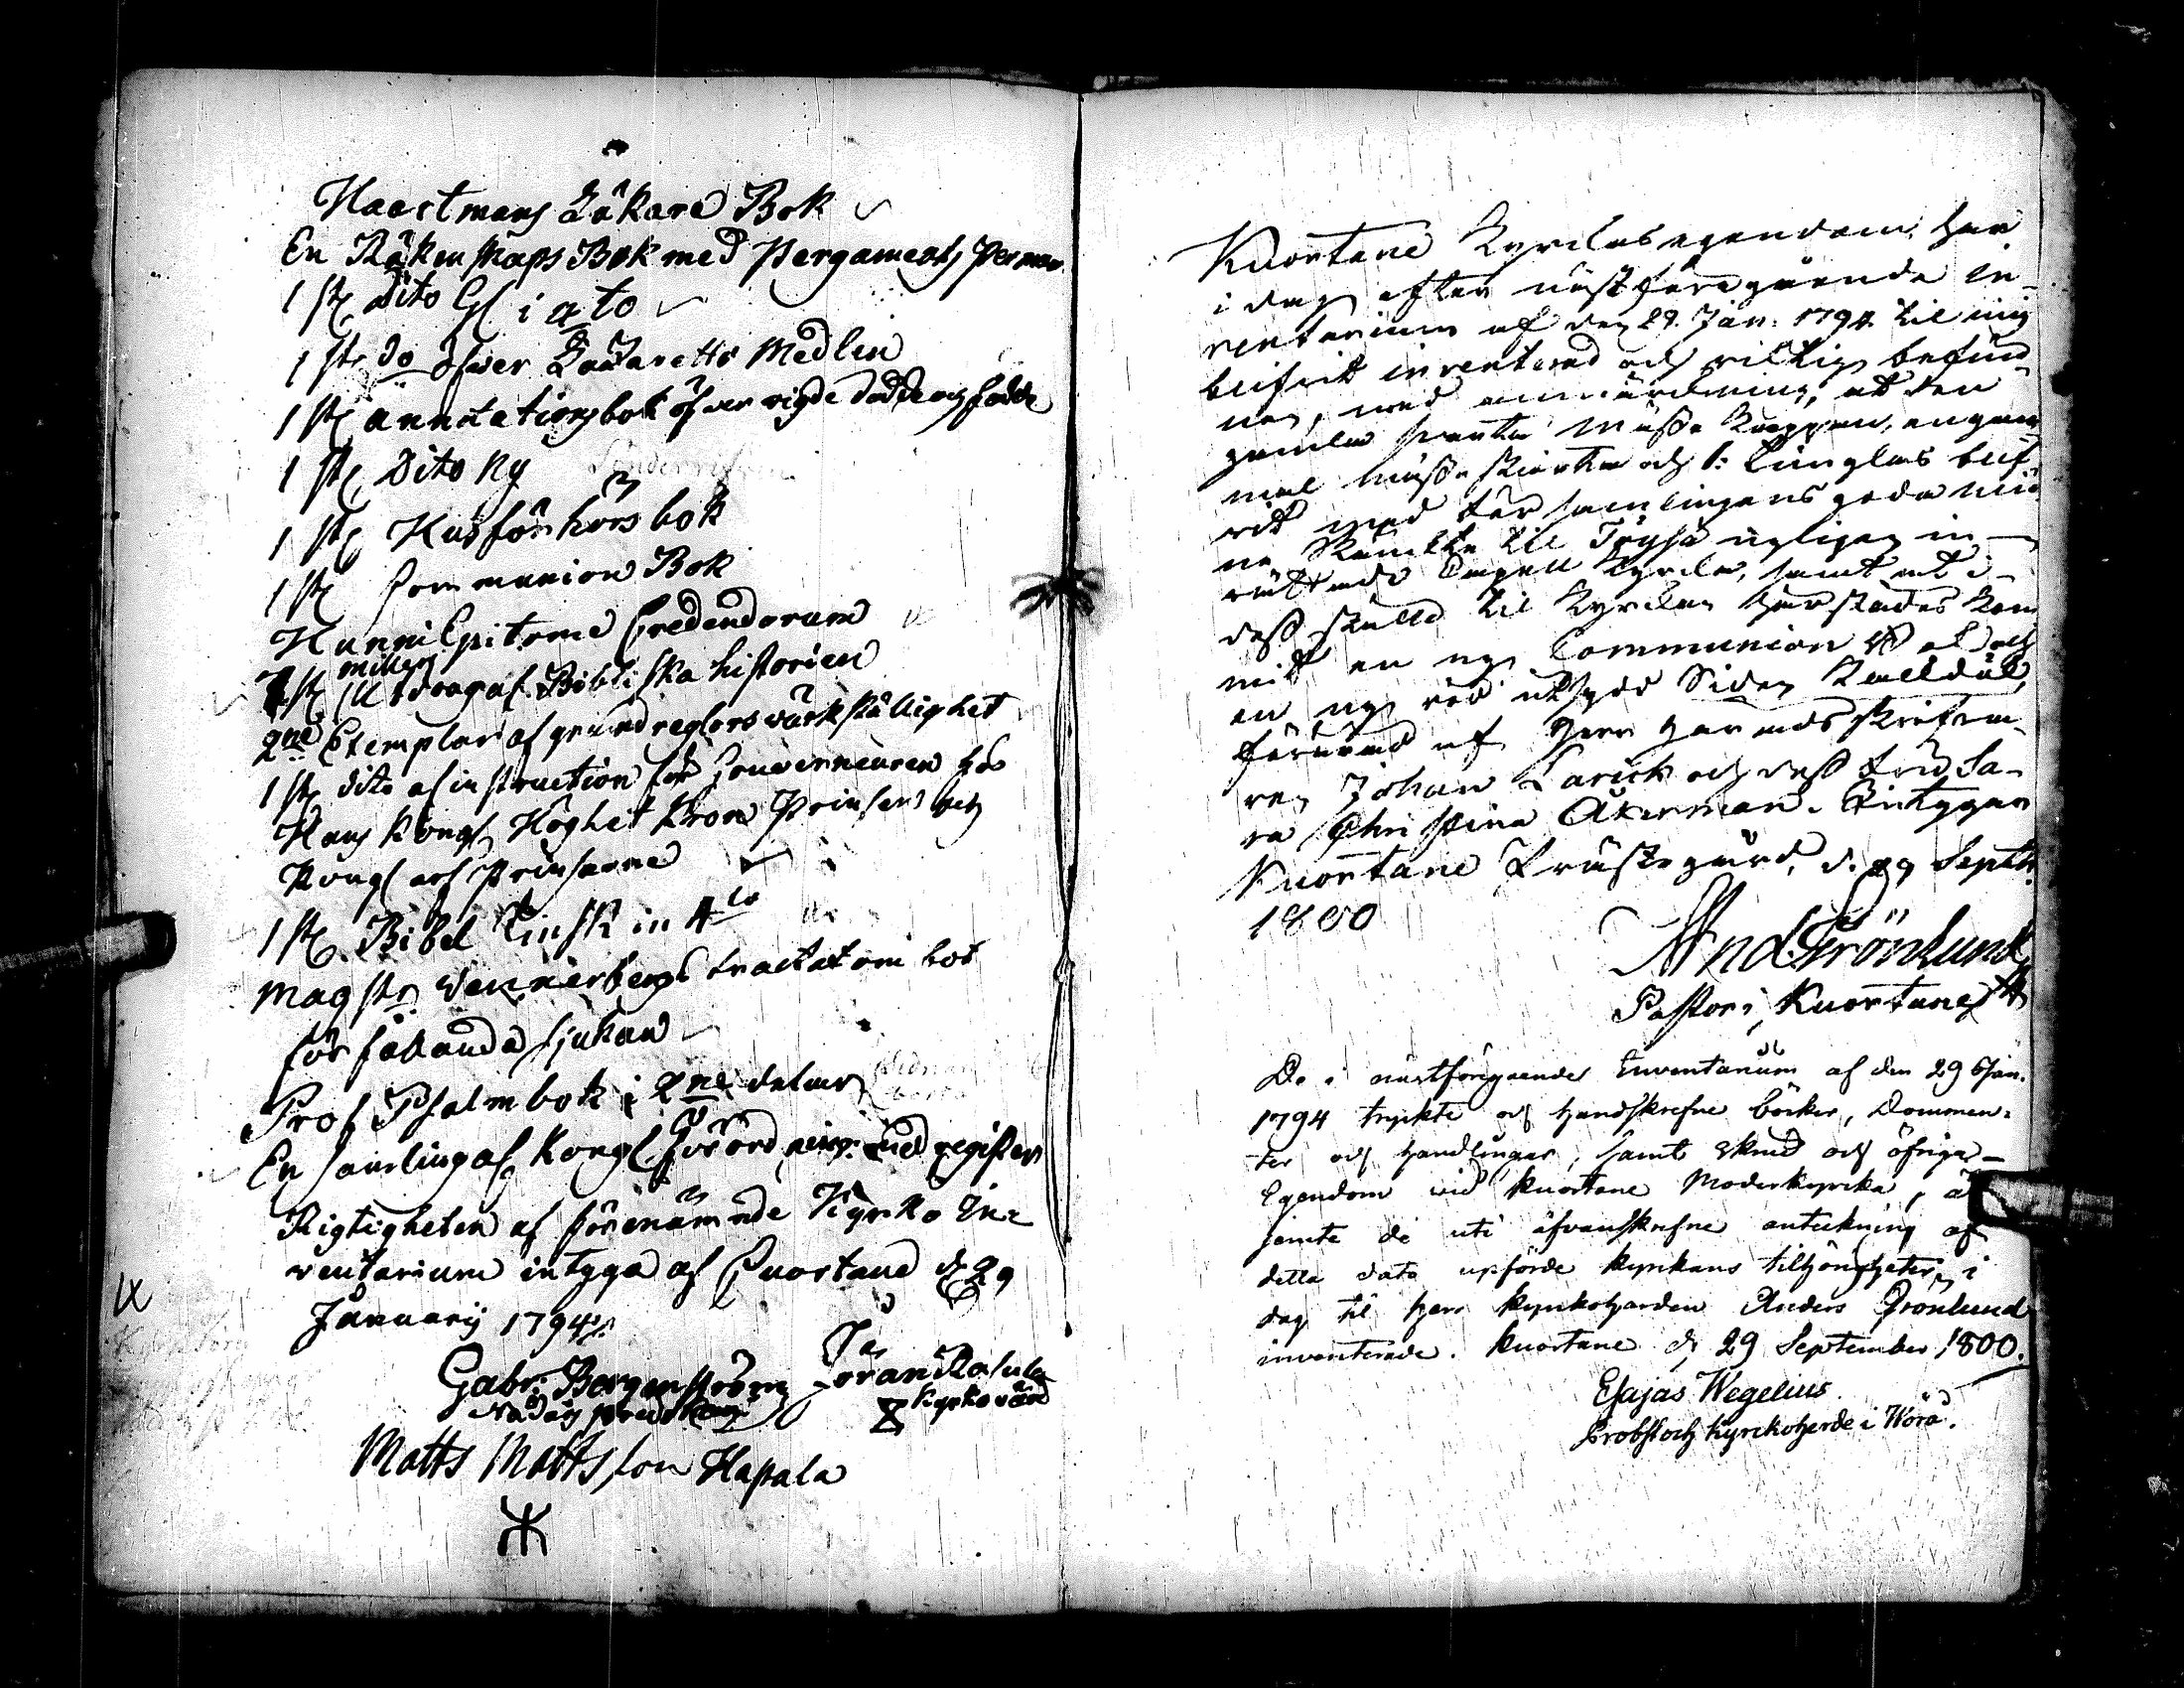 Haartmans Läkare Bok
En Räkenskaps Bok med Pergaments Permar
1 st dito Gl i 4to
1 st do öfwer Lazaretts Medlen
1 st annotations bok öfwer vigde dödde och födde
1 st Dito Ny
1 st Husförhörs bok
1 st Communion Bok
Hunni Epitome Credendorum
1 st millers Utdrag af Bibliska historien
2ne Exemplar af grundreglors värkställighet
1 st dito af instruction för Gouverneuren hos
Hans Kongl Höghet Kron Prinsen och
Kongl arf Prinsarne
1 st Bibel Finsk in 4to
Magstr Wennerbergs tractat om bot
för fallande sjukan
Prof Psalmbok i 2ne delar
En samling af Kongl Förordningr med register
Rigtigheten af förenämnde Kyrko In=
ventarium intygas af Cuortane d 29
Januarij 1794
Gabr: Bergenström Jöran Rasula
Nådårs pred Kyrkovärd
Matts Mattsson Hapala
Kuortane Kyrckas egendom har
i dag efter nästföregående in-
ventarium af den 29. Jan: 1794 til mig
blifvit inventerad och riktig befun-
nen, med anmärckning, at den
gamla svarta Mässe Kappan, en gam-
mal mässe skiorta och 1: Timglas blif-
vit med Församlingens goda min-
ne skänckte til Töysä nyligen in-
rättade Capell Kyrcka, samt at i
dess ställe til Kyrckan härstädes kom-
mit en ny Communion och
en ny röd Siden Kalkduk,
förärad af Herr Häradsskrifva-
ren Johan Larick och dess Fru Sa-
ra Christina Åkerman. Intygar
Kuortane Prästegård, d. 29 Septbr
1800
And Grönlund
Pastor i Kuortane
De i nästföregående Inventarium af den 29 Jan.
1794 tryckte och handskrefne böcker, Documen=
ter och handlingar, samt skrud och öfriga
Egendom vid Kuortane Moderkyrka, är
jemte de uti ofvanskrefne anteckning af
detta dato upförde kyrkans tilhörigheter, i
dag til Herr Kyrkoherden Anders Grönlund
inventerade. Kuortane d. 29 September 1800.
Esajas Wegelius.
Probst och Kyrckoherde i Wörå.